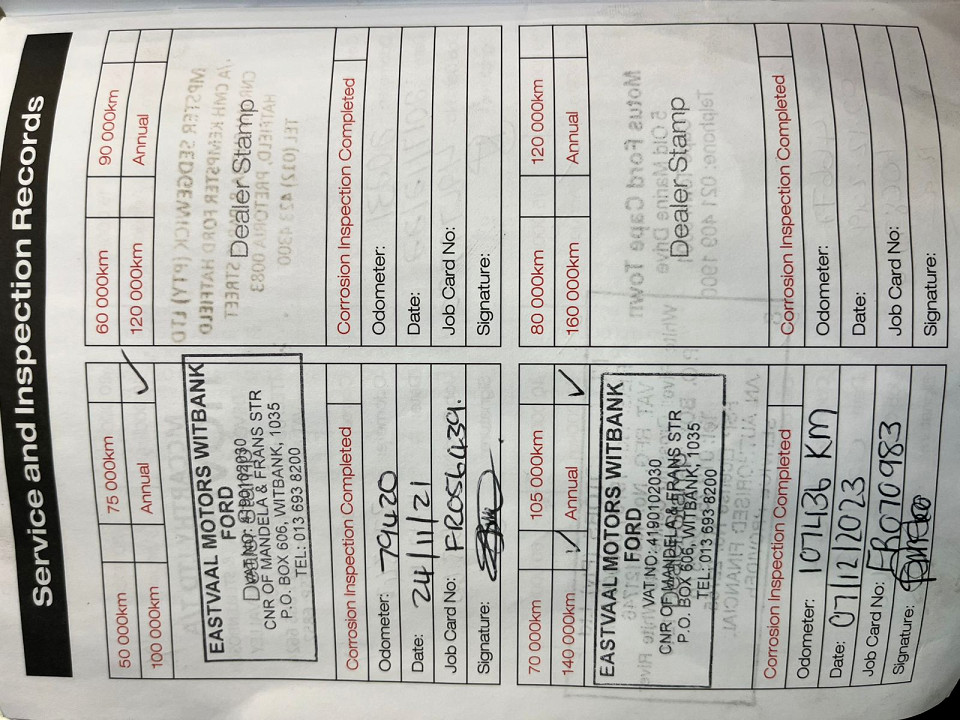 Service and Inspection Records
50 000km 75 000km
100 000km Annual ✓
EASTVAAL MOTORS WITBANK
FORD
VAT NO: 4190102030
CNR OF MANDELA & FRANS STR
P.O. BOX 606, WITBANK, 1035
TEL: 013 693 8200
Corrosion Inspection Completed
Odometer: 79420
Date: 24/11/21
Job Card No: FRO56439.
Signature:
60 000km 90 000km
120 000km Annual
Dealer Stamp
Corrosion Inspection Completed
Odometer:
Date:
Job Card No:
Signature:
70 000km 105 000km
140 000km ✓ Annual ✓
EASTVAAL MOTORS WITBANK
FORD
VAT NO: 4190102030
CNR OF MANDELA & FRANS STR
P.O. BOX 606, WITBANK, 1035
TEL: 013 693 8200
Corrosion Inspection Completed
Odometer: 107436 KM
Date: 07/12/2023
Job Card No: FRO710983
Signature:
80 000km 120 000km
160 000km Annual
Dealer Stamp
Corrosion Inspection Completed
Odometer:
Date:
Job Card No:
Signature: